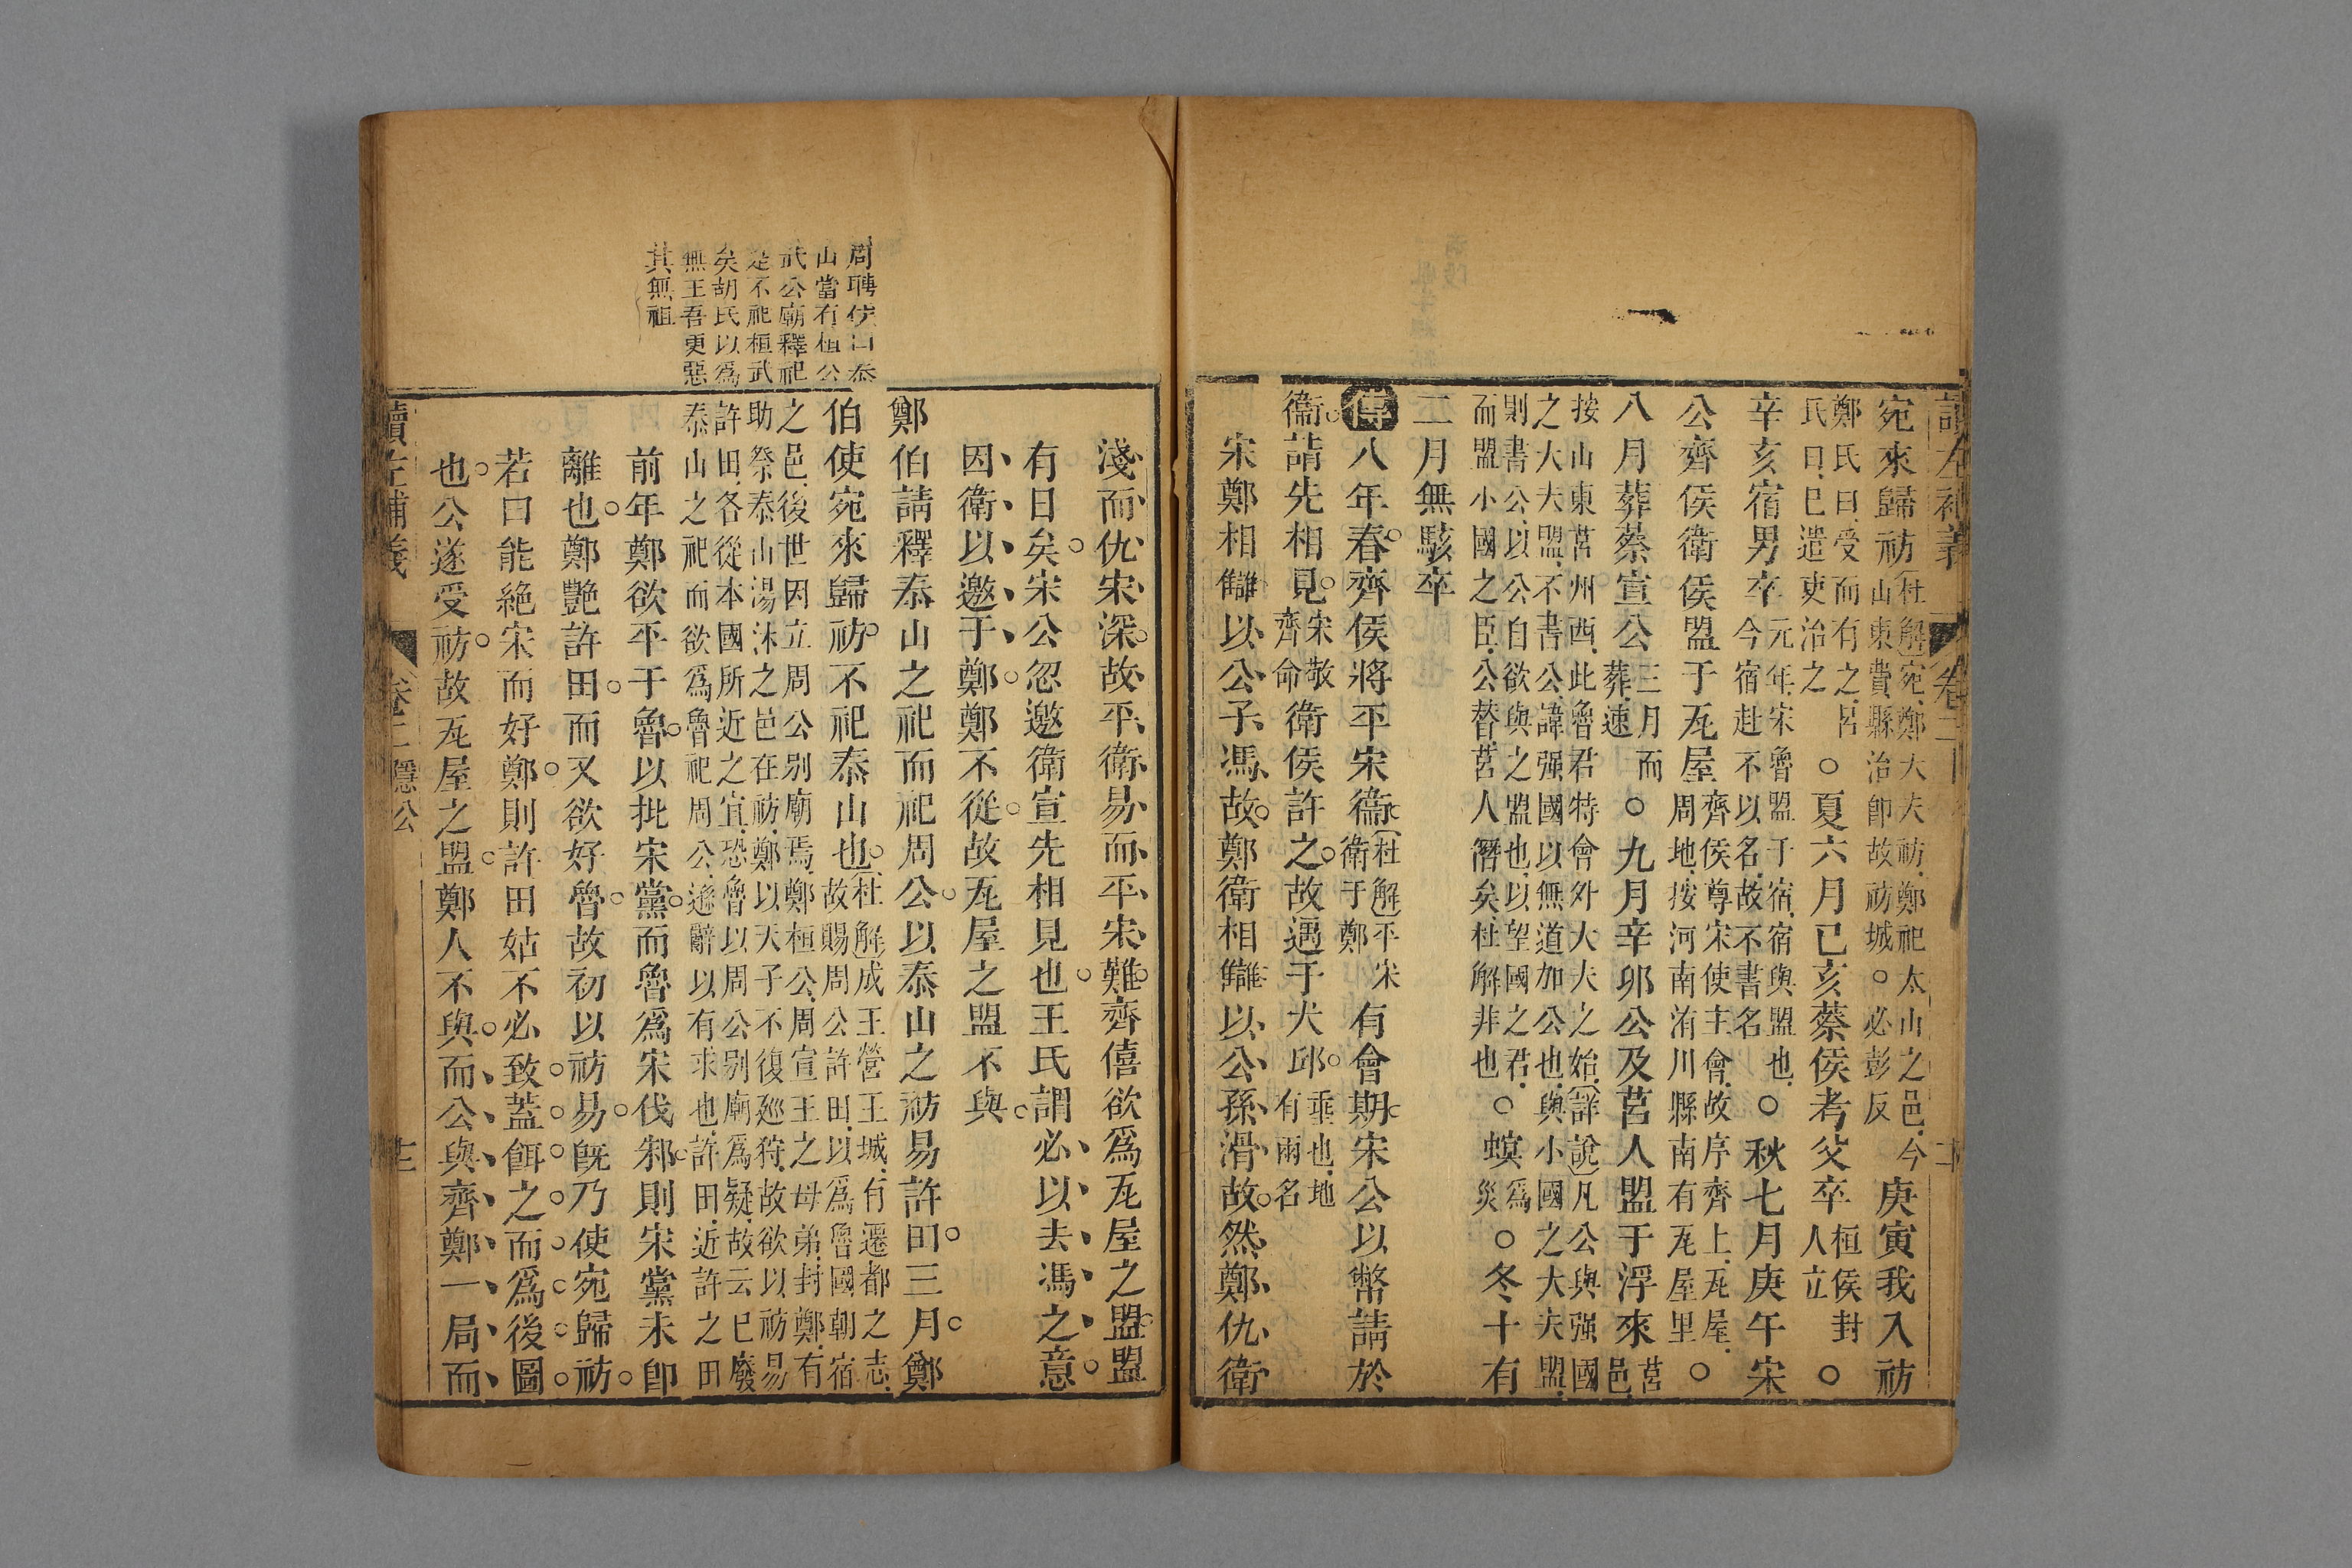 讀左補義　卷二
宛來歸祊杜解宛鄭大夫祊鄭祀太山之邑今
山東費縣治卽故祊城○必彭反庚寅我入祊
鄭氏曰受而有之呂
氏曰已遣吏治之○夏六月己亥蔡侯考父卒桓侯封
人立○
辛亥宿男卒元年宋魯盟于宿宿與盟也
今宿赴不以名故不書名○秋七月庚午宋
公齊侯衛侯盟于瓦屋齊侯尊宋使主會故序齊上瓦屋
周地按河南洧川縣南有瓦屋里○
八月葬蔡宣公三月而
葬速○九月辛卯公及莒人盟于浮來莒
邑
按山東莒州西此魯君特會外大夫之始詳說凡公與强國
之大夫盟不書公諱强國以無道加公也與小國之大夫盟
則書公以公自欲與之盟也以望國之君
而盟小國之臣公替莒人僭矣杜解非也○螟爲
災○冬十有
二月無駭卒
傳八年春齊侯將平宋衛杜解平宋
衛于鄭有會期宋公以幣請於
衛請先相見宋敬
齊命衛侯許之故遇于犬邱垂也地
有兩名
宋鄭相讎以公子馮故鄭衛相讎以公孫滑故然鄭仇衛
淺而仇宋深故平衛易而平宋難齊僖欲爲瓦屋之盟盟
有日矣宋公忽邀衛宣先相見也王氏謂必以去馮之意
因衛以邀于鄭鄭不從故瓦屋之盟不與
鄭伯請釋泰山之祀而祀周公以泰山之祊易許田三月鄭
周聘侯曰泰
山當有桓公
武公廟釋祀
是不祀桓武
矣胡氏以爲
無王吾更惡
其無祖
伯使宛來歸祊不祀泰山也杜解成王營王城有遷都之志
故賜周公許田以爲魯國朝宿
之邑後世因立周公别廟焉鄭桓公周宣王之母弟封鄭有
助祭泰山湯沐之邑在祊鄭以天子不復廵狩故欲以祊易
許田各從本國所近之宜恐魯以周公别廟爲疑故云已廢
泰山之祀而欲爲魯祀周公遜辭以有求也許田近許之田
前年鄭欲平于魯以批宋黨而魯爲宋伐邾則宋黨未卽
離也鄭艷許田而又欲好魯故初以祊易旣乃使宛歸祊
若曰能絶宋而好鄭則許田姑不必致蓋餌之而爲後圖
也公遂受祊故瓦屋之盟鄭人不與而公與齊鄭一局而
讀左補義　卷二隱公